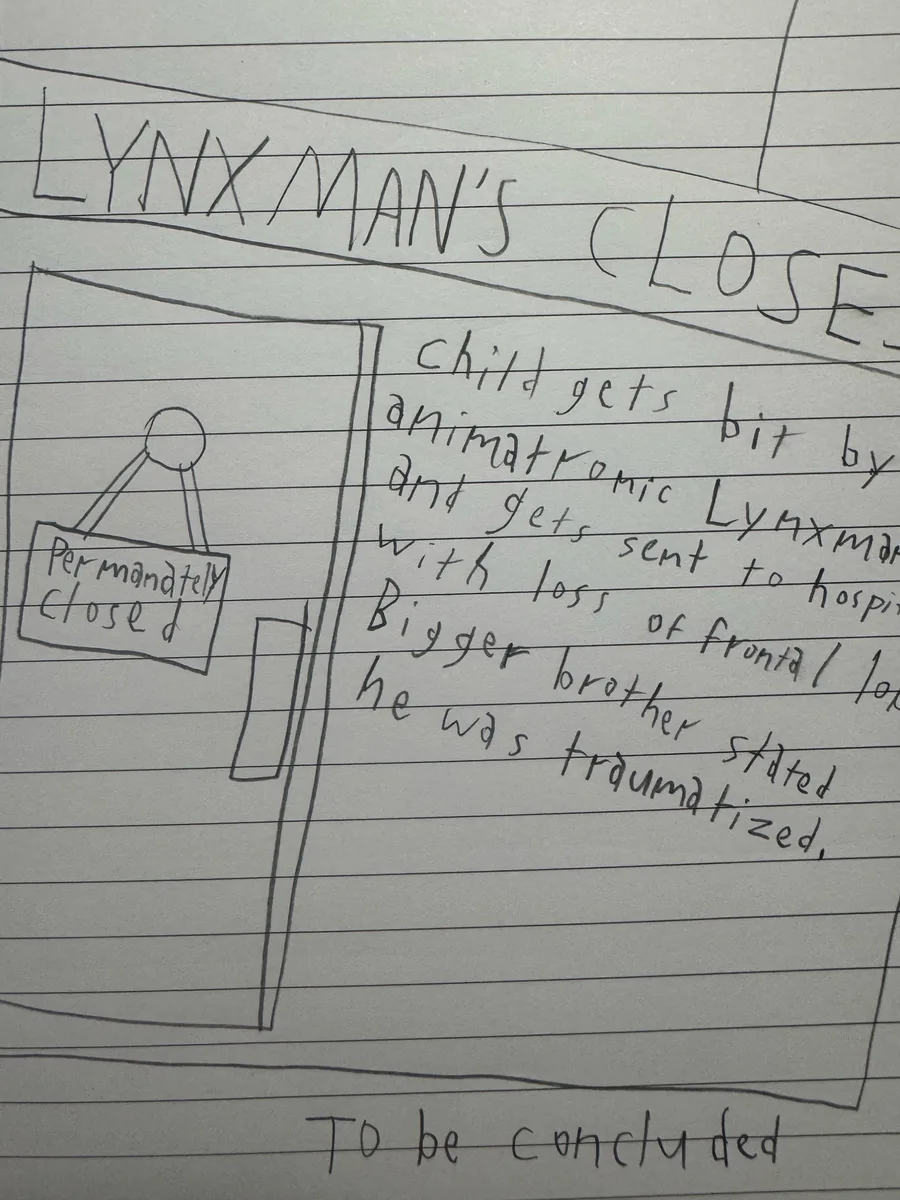 LYNXMAN'S CLOSE
Permanately
closed
Child gets bit by
animatronic Lynxman
and gets sent to hospi
with loss of frontal lo
Bigger brother stated
he was traumatized.
To be concluded